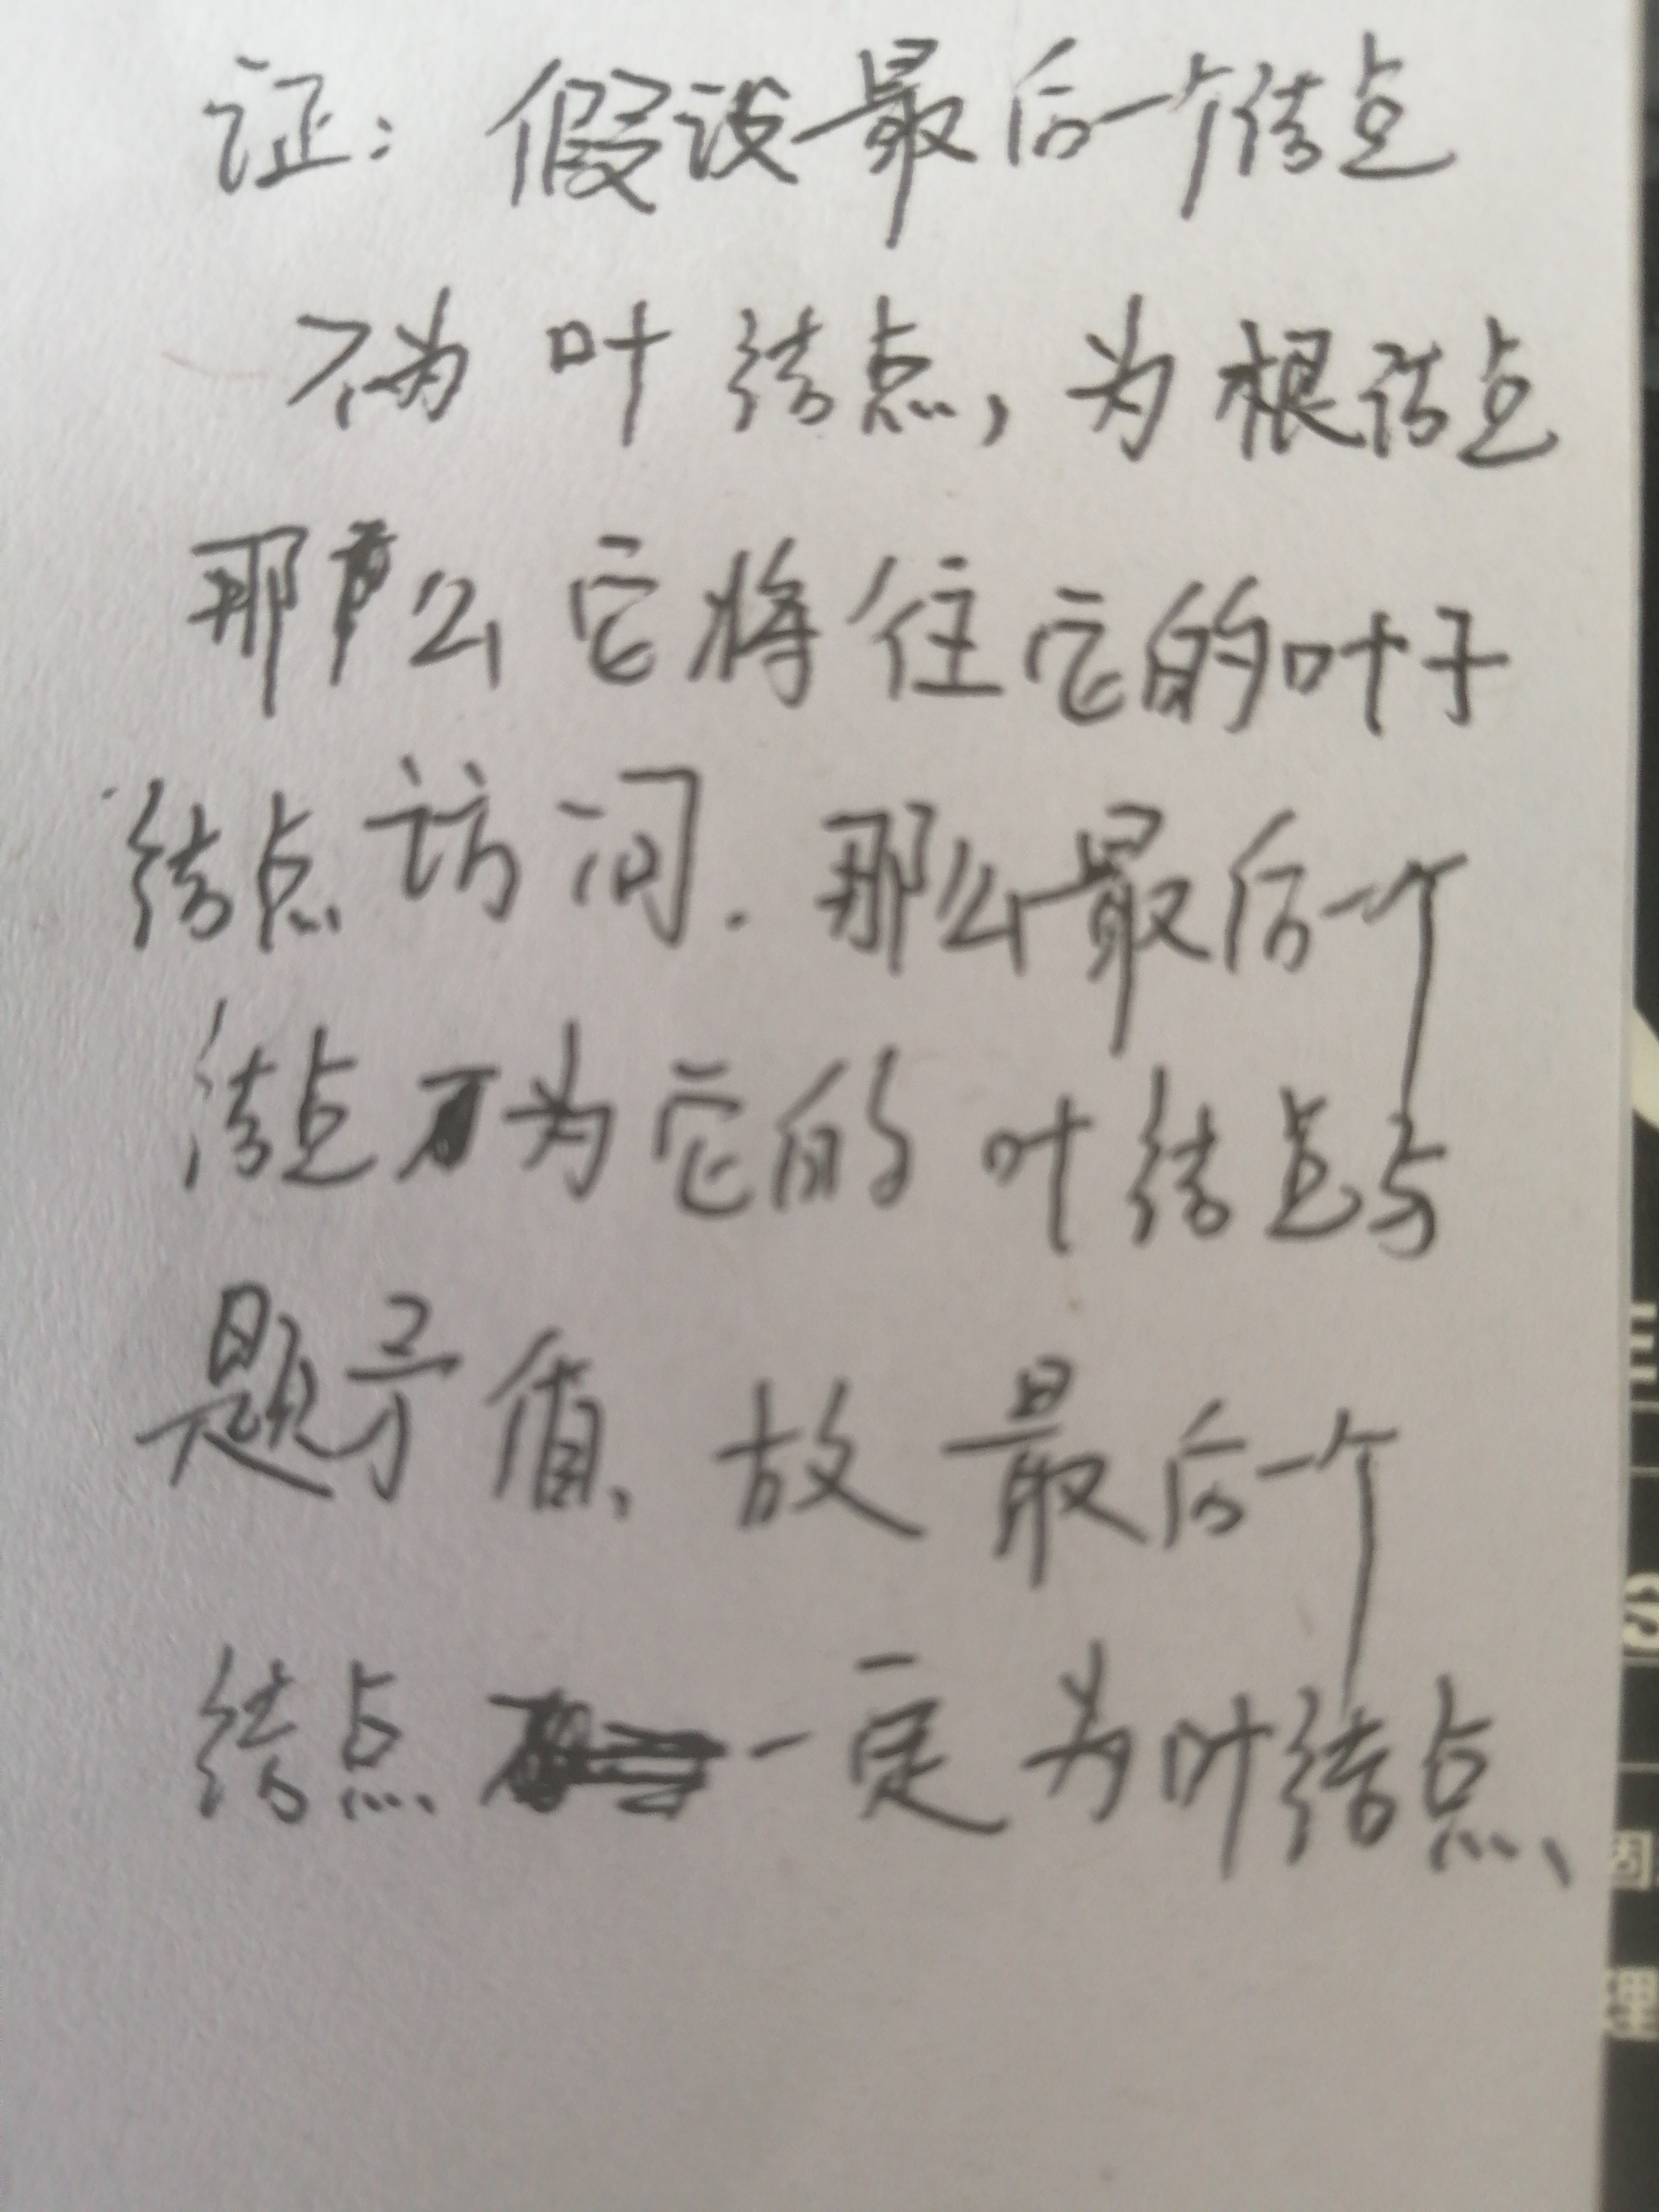 证：假设最后一个结点
不为叶结点，为根结点
那么它将往它的叶子
结点访问．那么最后一个
结点不为它的叶结点与
题矛盾，故最后一个
结点一定为叶结点、